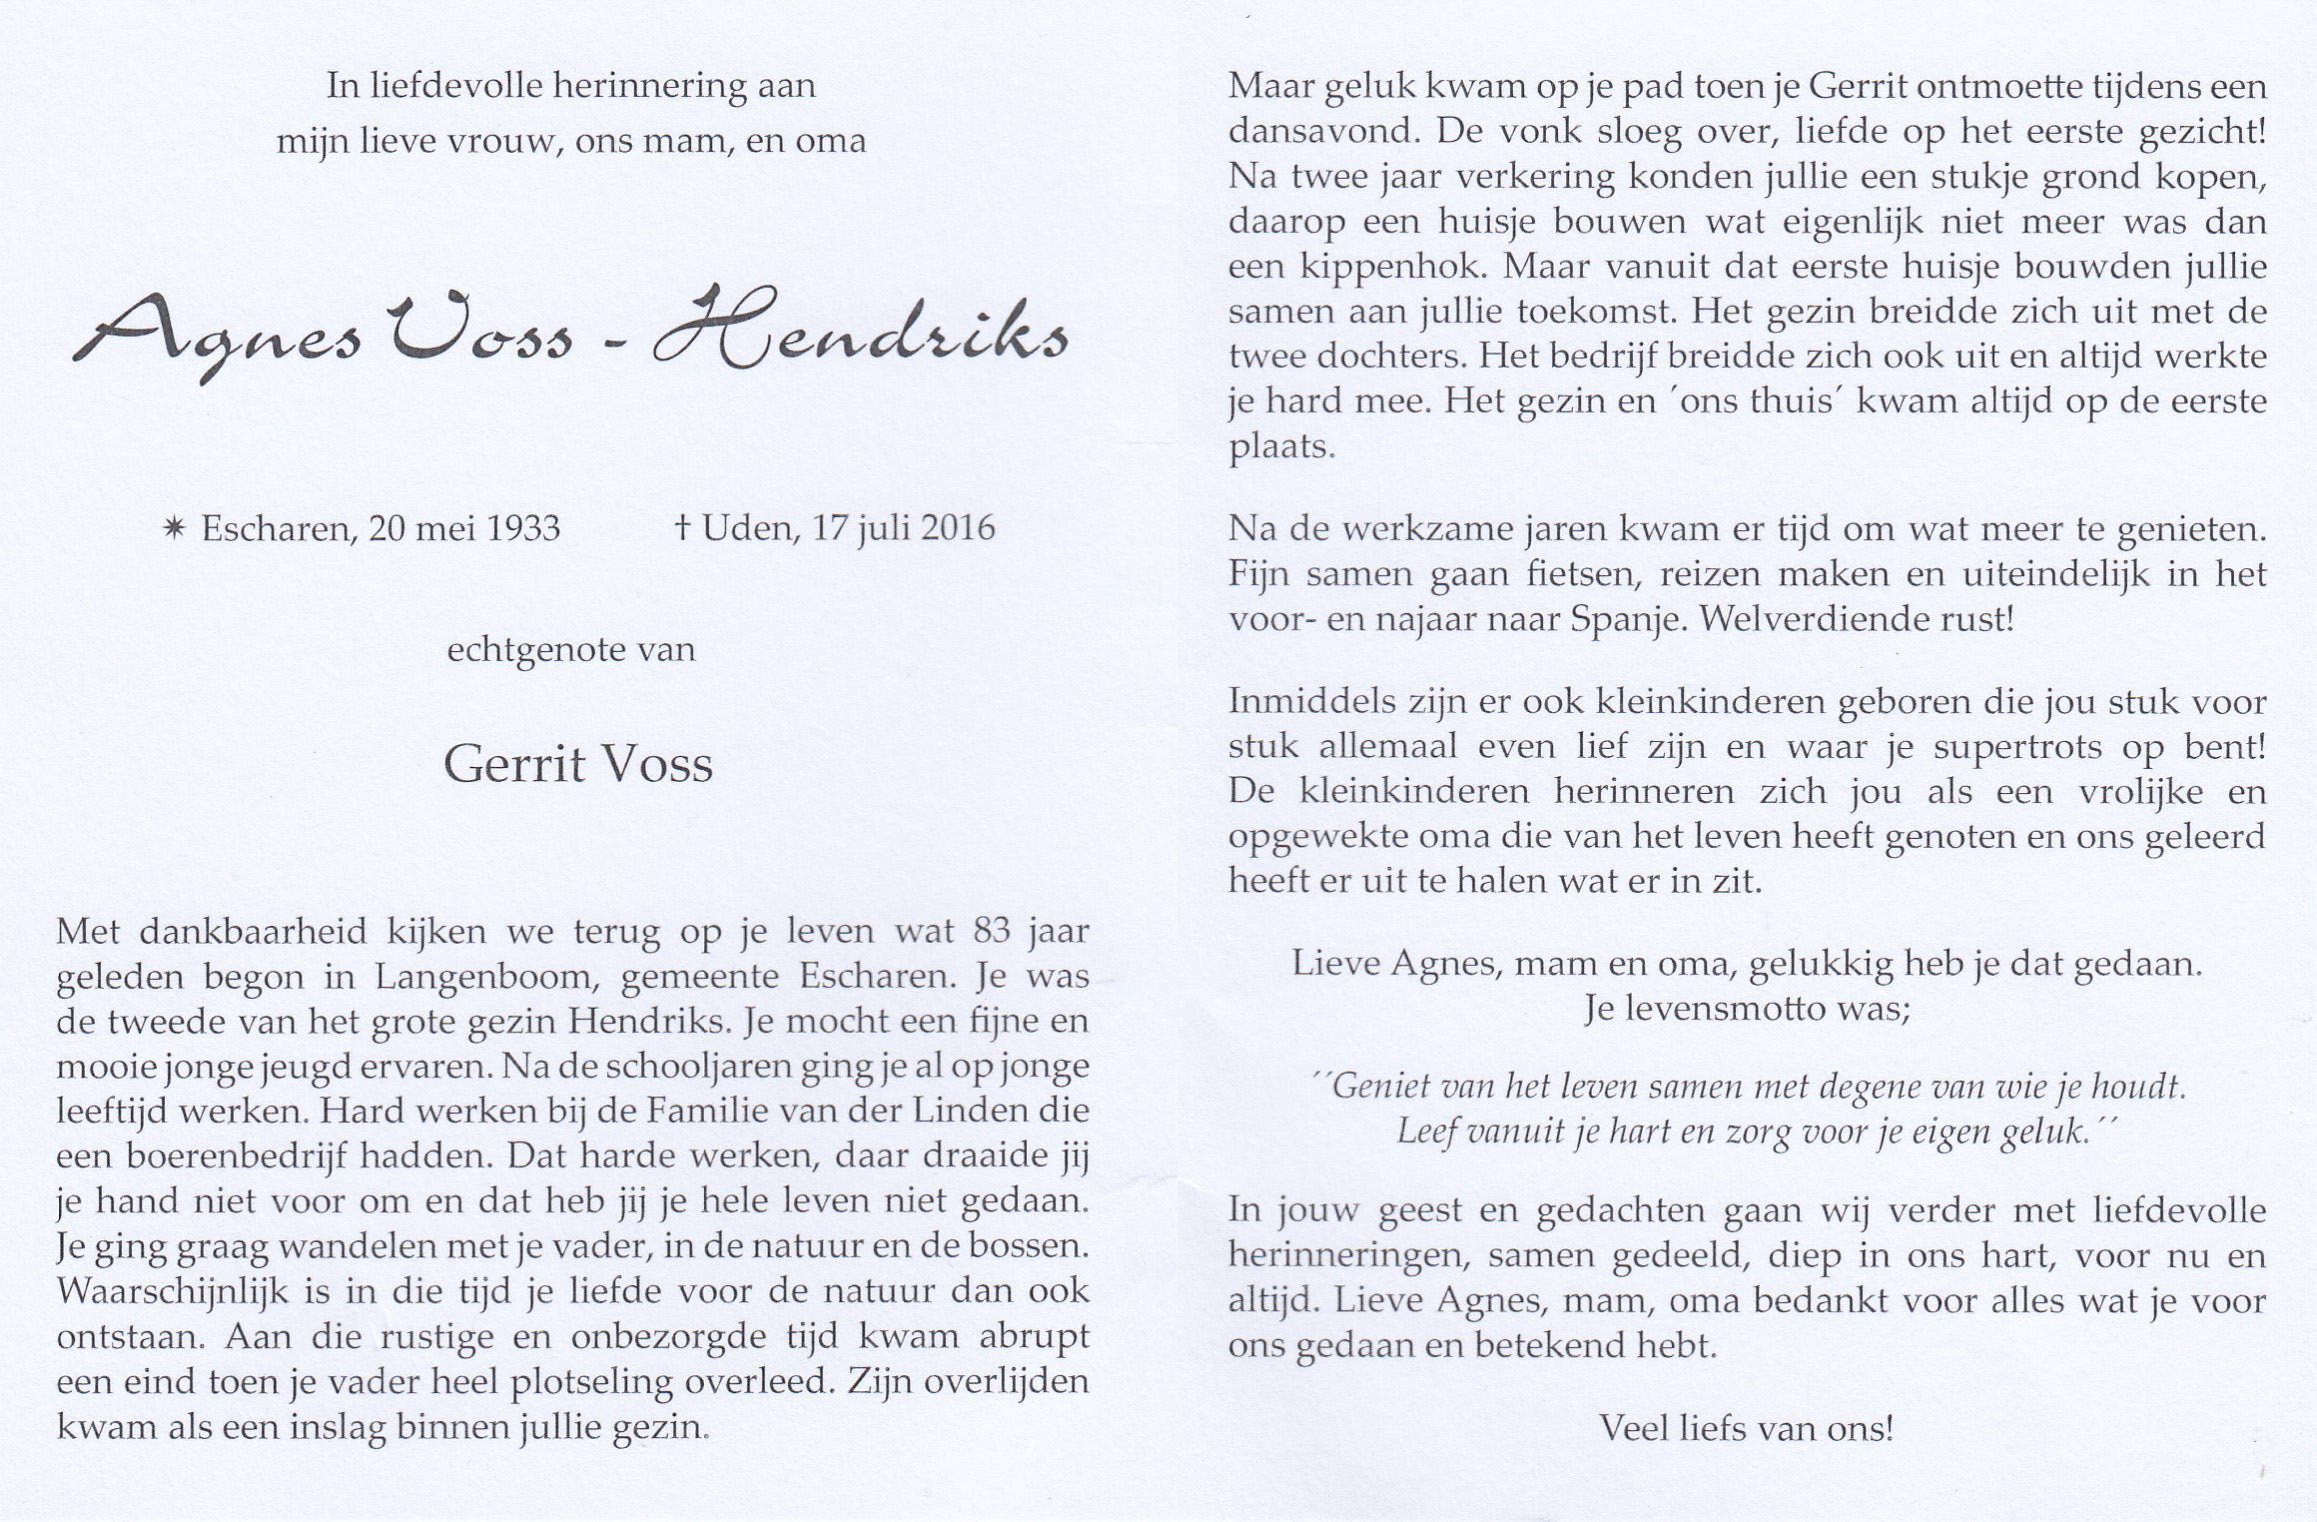 In liefdevolle herinnering aan
mijn lieve vrouw, ons mam, en oma
Agnes Voss - Hendriks
✷ Escharen, 20 mei 1933 † Uden, 17 juli 2016
echtgenote van
Gerrit Voss
Met dankbaarheid kijken we terug op je leven wat 83 jaar
geleden begon in Langenboom, gemeente Escharen. Je was
de tweede van het grote gezin Hendriks. Je mocht een fijne en
mooie jonge jeugd ervaren. Na de schooljaren ging je al op jonge
leeftijd werken. Hard werken bij de Familie van der Linden die
een boerenbedrijf hadden. Dat harde werken, daar draaide jij
je hand niet voor om en dat heb jij je hele leven niet gedaan.
Je ging graag wandelen met je vader, in de natuur en de bossen.
Waarschijnlijk is in die tijd je liefde voor de natuur dan ook
ontstaan. Aan die rustige en onbezorgde tijd kwam abrupt
een eind toen je vader heel plotseling overleed. Zijn overlijden
kwam als een inslag binnen jullie gezin.
Maar geluk kwam op je pad toen je Gerrit ontmoette tijdens een
dansavond. De vonk sloeg over, liefde op het eerste gezicht!
Na twee jaar verkering konden jullie een stukje grond kopen,
daarop een huisje bouwen wat eigenlijk niet meer was dan
een kippenhok. Maar vanuit dat eerste huisje bouwden jullie
samen aan jullie toekomst. Het gezin breidde zich uit met de
twee dochters. Het bedrijf breidde zich ook uit en altijd werkte
je hard mee. Het gezin en ´ons thuis´ kwam altijd op de eerste
plaats.
Na de werkzame jaren kwam er tijd om wat meer te genieten.
Fijn samen gaan fietsen, reizen maken en uiteindelijk in het
voor- en najaar naar Spanje. Welverdiende rust!
Inmiddels zijn er ook kleinkinderen geboren die jou stuk voor
stuk allemaal even lief zijn en waar je supertrots op bent!
De kleinkinderen herinneren zich jou als een vrolijke en
opgewekte oma die van het leven heeft genoten en ons geleerd
heeft er uit te halen wat er in zit.
Lieve Agnes, mam en oma, gelukkig heb je dat gedaan.
Je levensmotto was;
´´Geniet van het leven samen met degene van wie je houdt.
Leef vanuit je hart en zorg voor je eigen geluk.´´
In jouw geest en gedachten gaan wij verder met liefdevolle
herinneringen, samen gedeeld, diep in ons hart, voor nu en
altijd. Lieve Agnes, mam, oma bedankt voor alles wat je voor
ons gedaan en betekend hebt.
Veel liefs van ons!